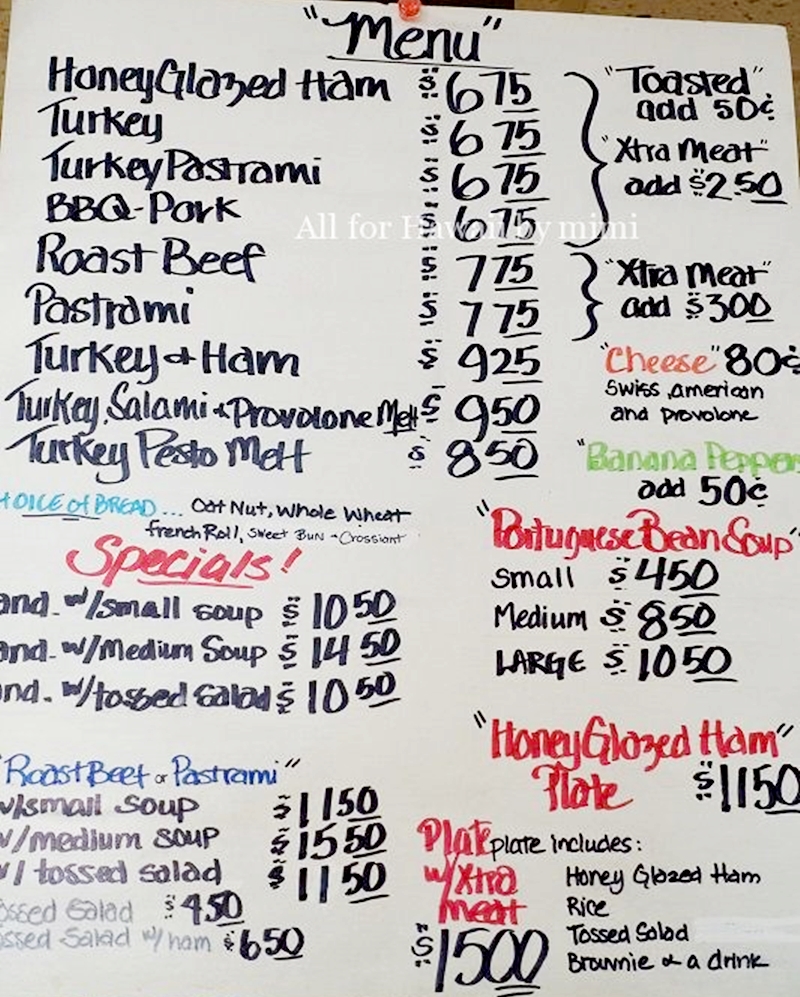 "Menu"
Honey Glazed Ham $6.75
Turkey $6.75
Turkey Pastrami $6.75
BBQ-Pork $6.75
Roast Beef $7.75
Pastrami $7.75
Turkey & Ham $9.25
Turkey, Salami & Provolone Melt $9.50
Turkey Pesto Melt $8.50
"Toasted"
add 50¢
"Xtra Meat"
add $2.50
"Xtra Meat"
add $3.00
"Cheese" 80¢
Swiss, American
and Provolone
"Banana Pepper
add 50¢
HOICE of BREAD... Oat Nut, Whole Wheat
French Roll, Sweet Bun - Crossiant
Specials!
and. w/small soup $10.50
and. w/Medium Soup $14.50
nd. w/tossed salad $10.50
"Roast Beef or Pastrami"
w/small soup $11.50
w/medium soup $15.50
w/ tossed salad $11.50
ossed Salad $4.50
ossed Salad w/ham $6.50
"Portuguese Bean Soup"
Small $4.50
Medium $8.50
LARGE $10.50
"Honey Glazed Ham"
Plate $11.50
Plate
w/Xtra
meat
$15.00
plate includes:
Honey Glazed Ham
Rice
Tossed Salad
Brownie & a drink
All for Hawaii by mimi